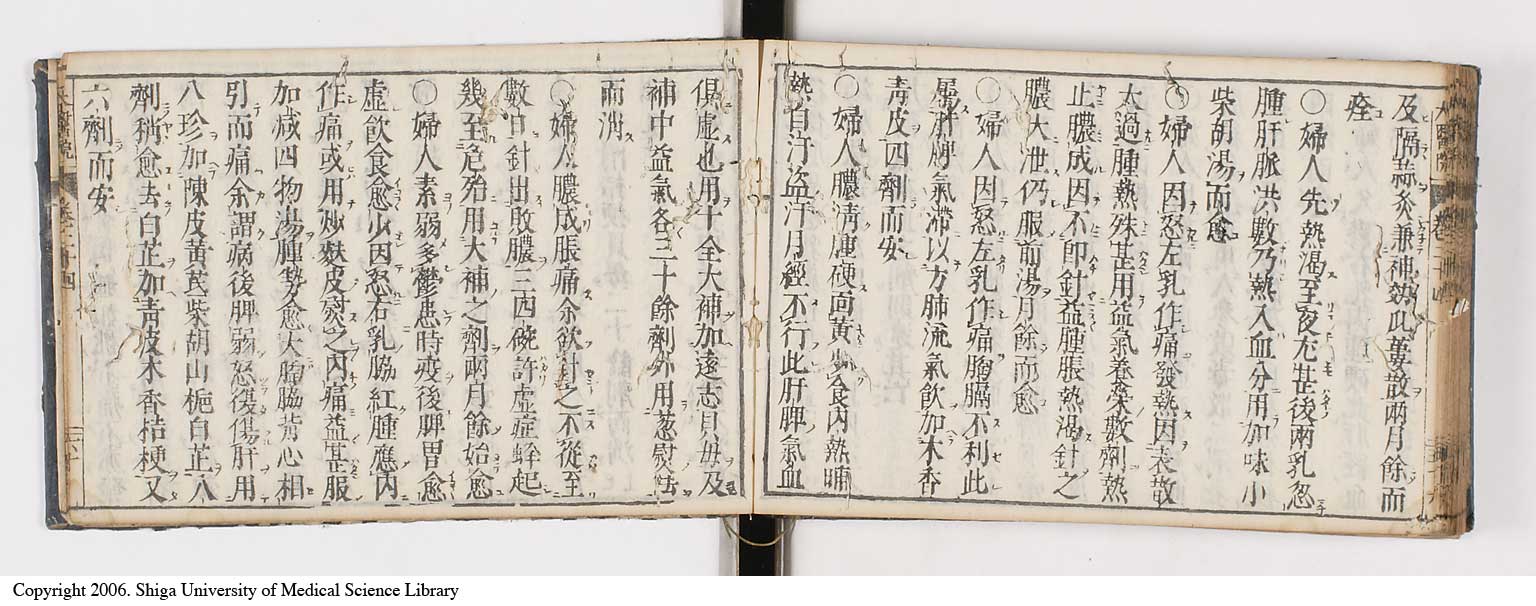 及隔蒜灸兼神效瓜蔞散兩月餘而
痊
○婦人先熱渴至夜尤甚後兩乳忽
腫肝脈洪數乃熱入血分用加味小
柴胡湯而愈
○婦人因怒左乳作痛發熱因表散
太過腫熱殊甚用益氣養榮數劑熱
止膿成因不即針益腫脹熱渴針之
膿大泄仍服前湯月餘而愈
○婦人因怒左乳作痛胸膈不利此
屬肝脾氣滯以方脉流氣飲加木香
青皮四劑而安
○婦人膿淸腫硬面黃少食內熱晡
熱自汗盜汗月經不行此肝脾氣血
俱虛也用十全大補加遠志貝母及
補中益氣各三十餘劑外用葱熨法
而消
○婦人膿成脹痛余欲針之不從至
數日針出敗膿三四碗許虛症蜂起
幾至危殆用大補之劑兩月餘始愈
○婦人素弱多鬱患時疫後脾胃愈
虛飲食愈少因怒右乳脇紅腫應內
作痛或用炒麩皮熨之內痛益甚服
加减四物湯腫勢愈大胸脇背心相
引而痛余謂病後脾弱怒復傷肝用
八珍加陳皮黃芪柴胡山梔白芷八
劑稍愈去白芷加靑皮木香桔梗又
六劑而安
Copyright 2006. Shiga University of Medical Science Library